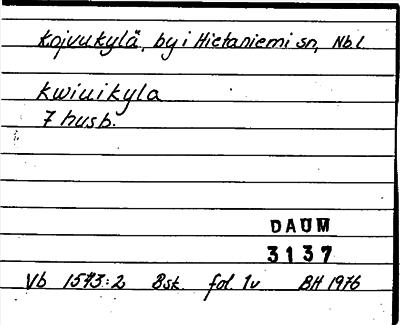 Koivukylä, by i Hietaniemi sn, Nbl.
Kwiuikyla
7 husb.
DAUM
3137
Vb 1573:2 Bsk. fol. 1v BH 1976